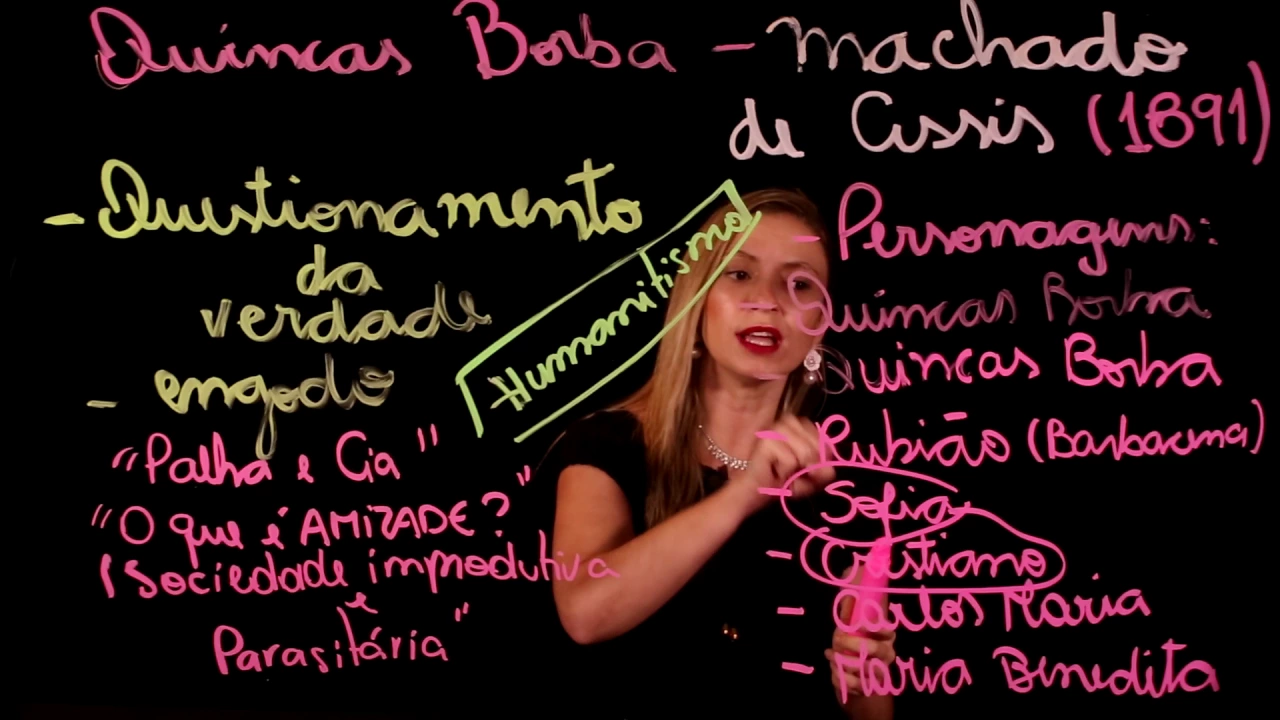 Quincas Borba - Machado
de Assis (1891)
- Questionamento
da
verdade
- engodo
"Palha e Cia"
"O que é AMIZADE?"
(Sociedade improdutiva
e
Parasitária"
Humanitismo
- Personagens:
- Quincas Borba
- Quincas Borba
- Rubião (Barbacena)
- Sofia
- Cristiano
- Carlos Maria
- Maria Benedita